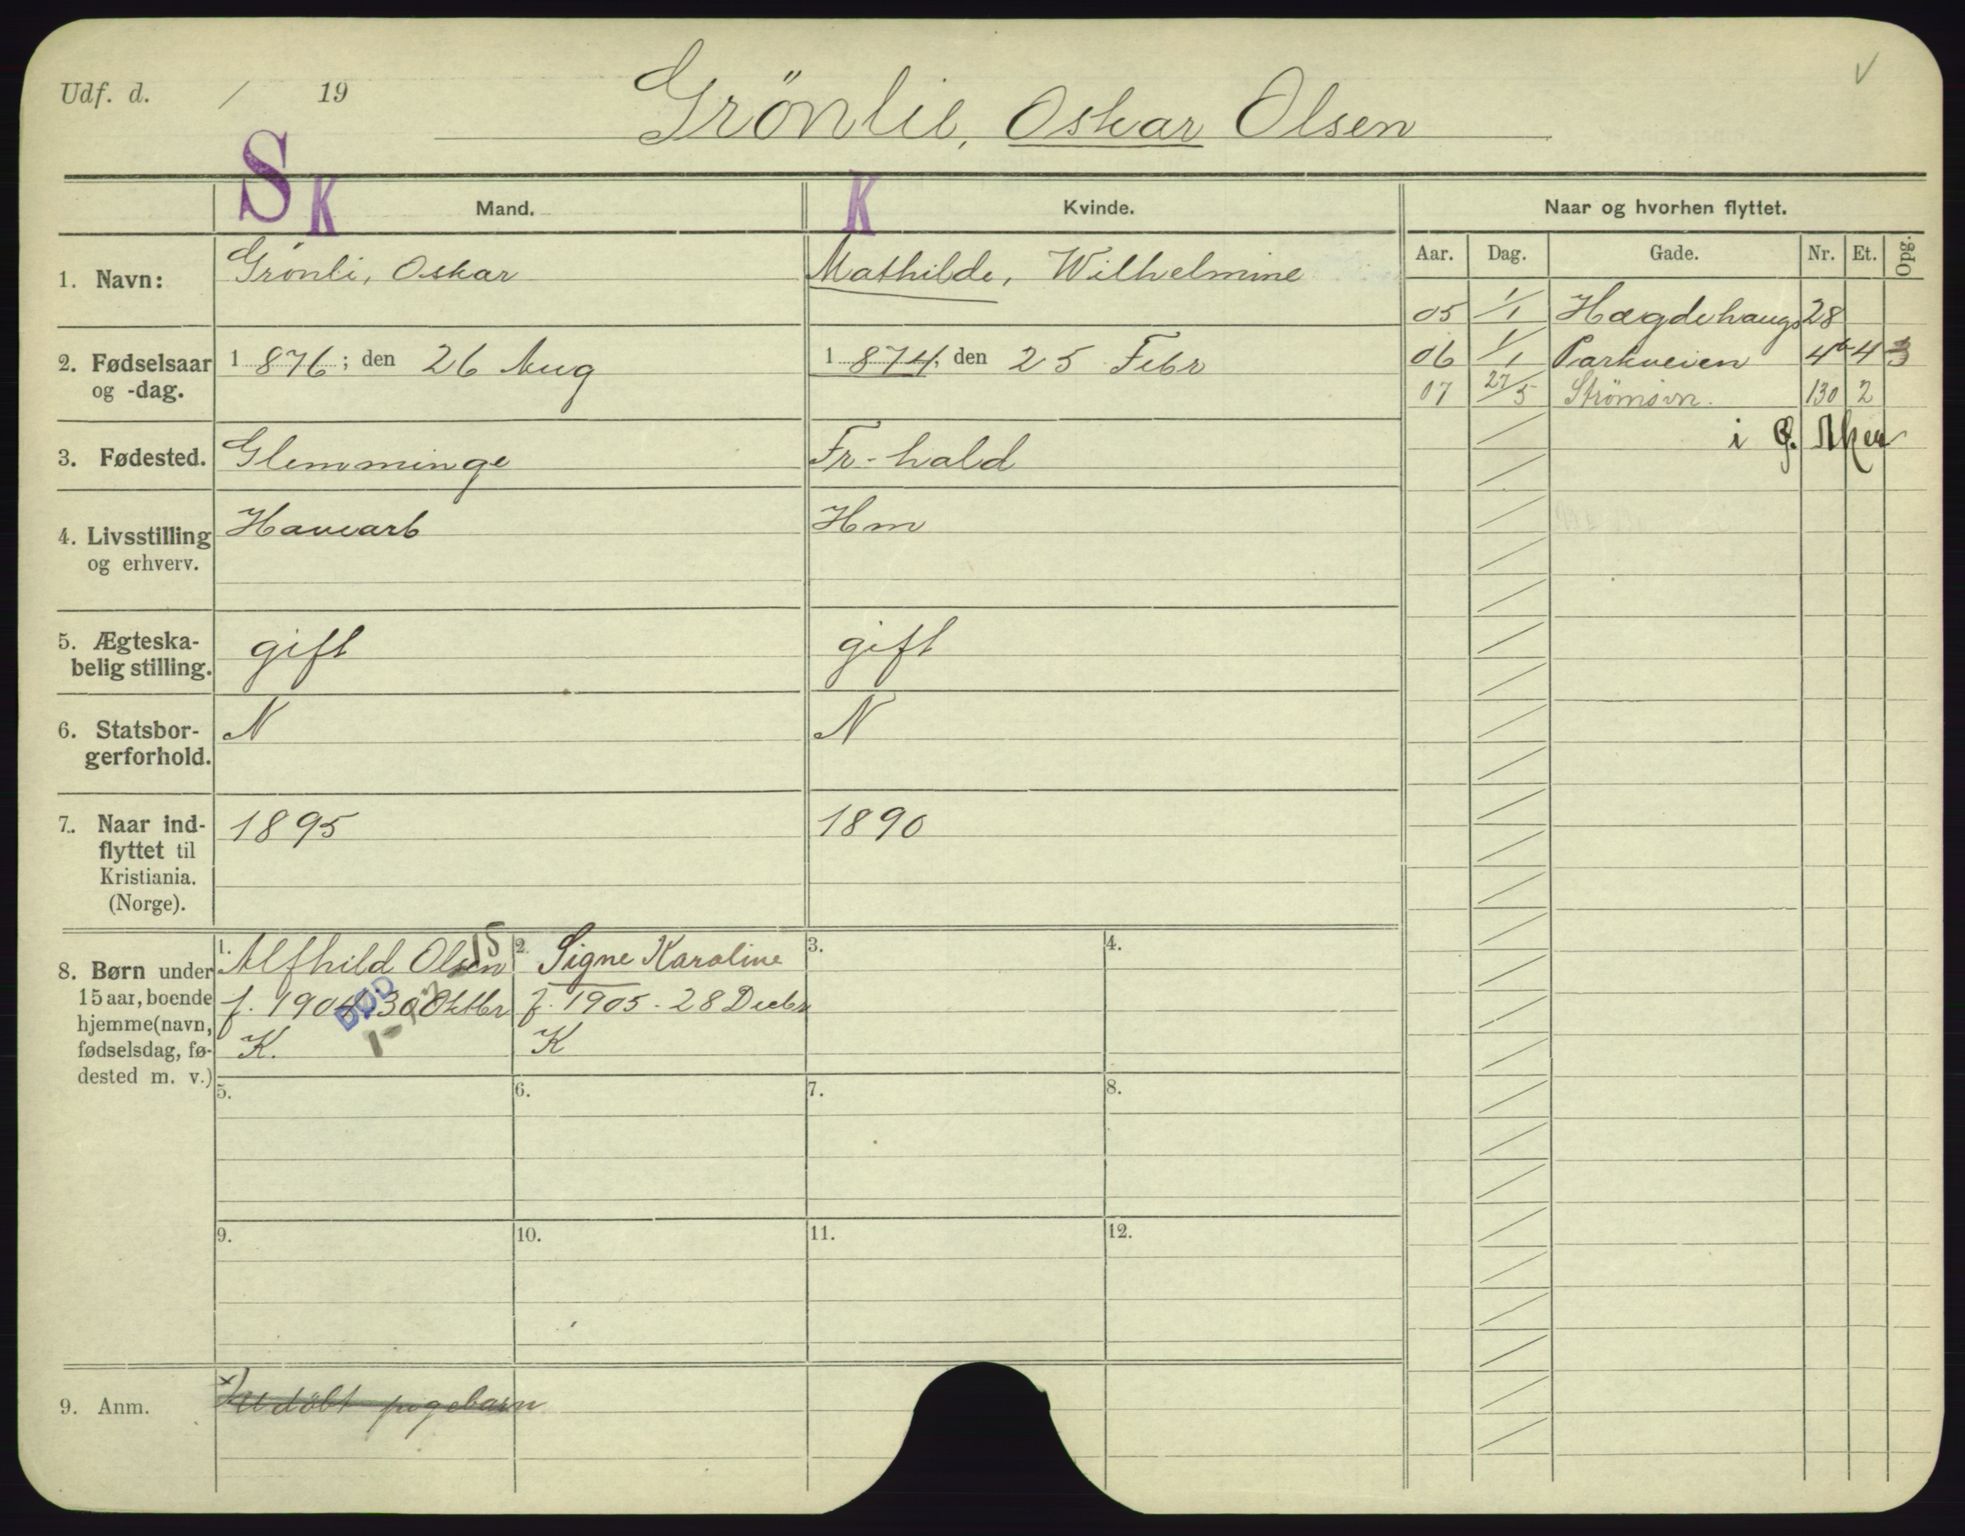 Udf. d. / 19
Grönlie, Oskar Olsen
V
S K Mand. K Kvinde. Naar og hvorhen flyttet.
Aar. Dag. Gade. Nr. Et. Opg.
1. Navn: Grönli, Oskar Mathilde, Wilhelmine
05 1/1 Hægdehaugs 28
2. Fødselsaar 1 876 ; den 26 Aug 1 874, den 25 Febr
og -dag.
06 1/1 Parkveien 4b 4 3
07 27/5 Strömsvn. 130 2
i Ø. Aker
3. Fødested. Glemminge Fr-hald
4. Livsstilling Havearb Hm
og erhverv.
5. Ægteska- gift gift
belig stilling.
6. Statsbor- N N
gerforhold.
7. Naar ind- 1895 1890
flyttet til
Kristiania.
(Norge).
8. Børn under
15 aar, boende
hjemme (navn,
fødselsdag, fø-
dested m. v.)
1. Alfhild Olsen
f. 1904 30 Oktbr
K.
DØD
15
2. Signe Karoline
f. 1905 - 28 Decbr
K
3. 4.
5. 6. 7. 8.
9. 10. 11. 12.
9. Anm. x) Udöbt pigebarn